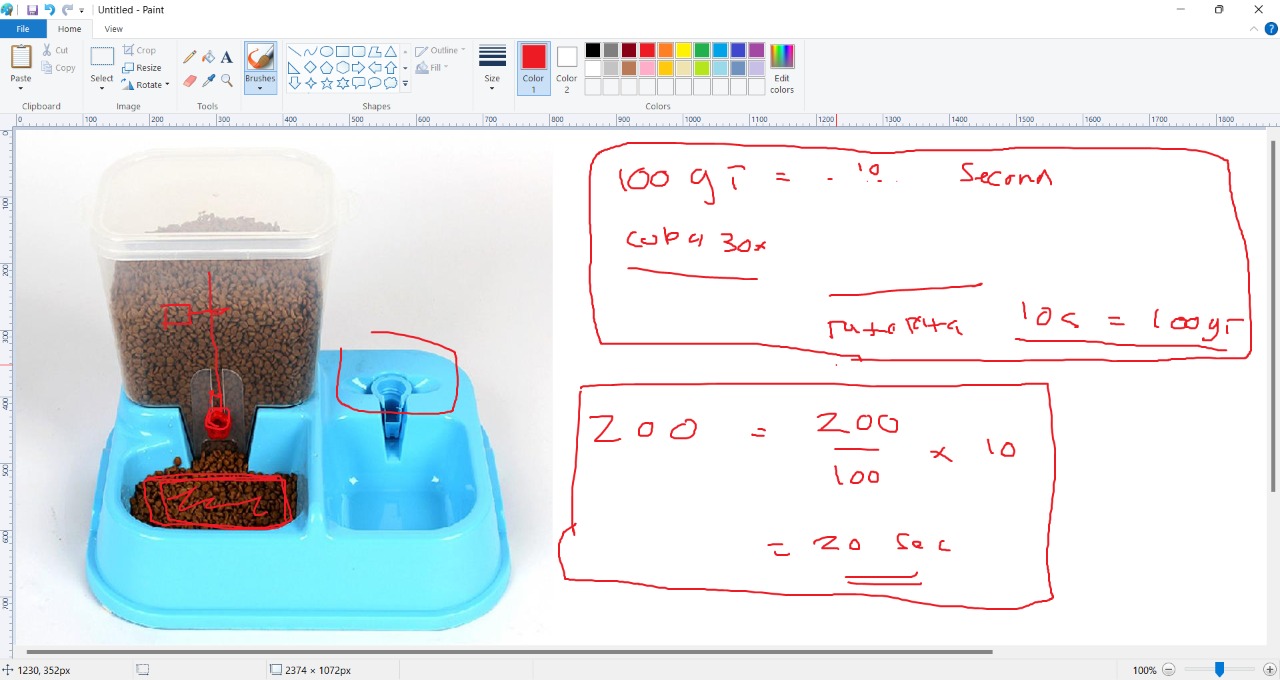 Untitled - Paint
File
Home
View
Paste
Cut
Copy
Clipboard
Select
Crop
Resize
Rotate
Image
Tools
Brushes
Shapes
Outline
Fill
Size
Color 1
Color 2
Edit colors
Colors
0 100 200 300 400 500 600 700 800 900 1000 1100 1200 1300 1400 1500 1600 1700 1800
0
100
200
300
400
500
600
700
100 gr = 10 Second
coba 30x
rata Rata 10s = 100gr
200 = 200
100
x 10
= 20 Sec
1230, 352px
2374 × 1072px
100%